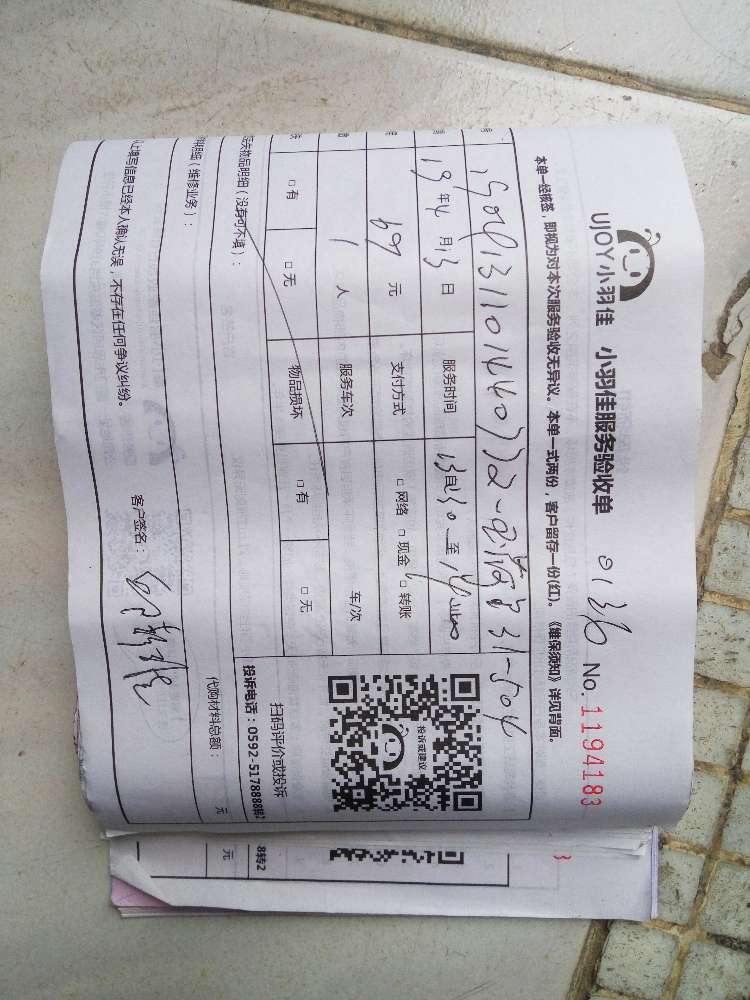 UJOY小羽佳 小羽佳服务验收单 01316 No.1194183
本单一经核签，即视为对本次服务验收无异议。本单一式两份，客户留存一份(红)。《维保须知》详见背面。
31-504
19年4月13日 服务时间 至
元 支付方式 □网络 □现金 □转账
1人 服务车次 车/次
□有 □无 物品损坏 □有 □无
物品明细（没有可不填）：
投诉或建议
扫码评价或投诉
投诉电话：0592-5178888转2
明细（维修业务）：
代购材料总额： 元
以上填写信息已经本人确认无误，不存在任何争议纠纷。 客户签名：
8转2
元